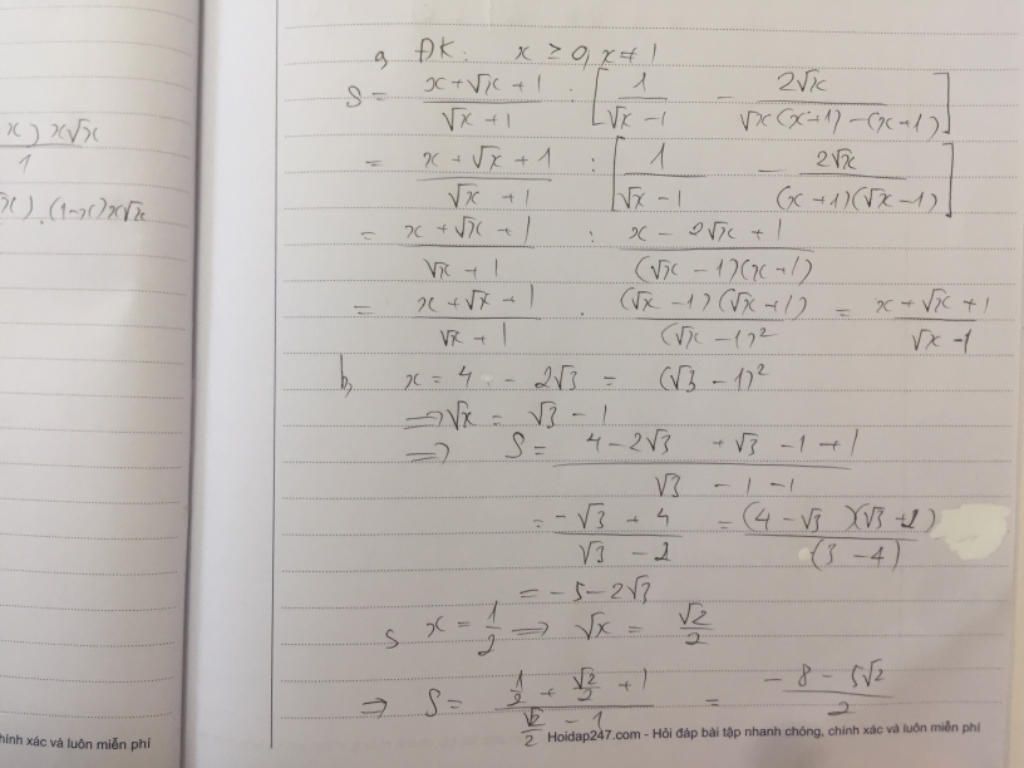 x) x√x
1
x).(1-x)x√x
hính xác và luôn miễn phí
a, ĐK: x ≥ 0, x ≠ 1
S = (x+√x+1)/(√x+1) : [1/(√x-1) - 2√x/(√x(x+1)-(x+1))]
= (x+√x+1)/(√x+1) : [1/(√x-1) - 2√x/((x+1)(√x-1))]
= (x+√x+1)/(√x+1) : (x-2√x+1)/((√x-1)(x+1))
= (x+√x+1)/(√x+1) . (√x-1)(√x+1)/(√x-1)² = (x+√x+1)/(√x-1)
b, x = 4 - 2√3 = (√3-1)²
⇒ √x = √3 - 1
⇒ S = (4-2√3+√3-1+1)/(√3-1-1)
= (-√3+4)/(√3-2) = (4-√3)(√3+2)/(3-4)
= -5-2√3
x = 1/2 ⇒ √x = √2/2
⇒ S = (1/2+√2/2+1)/(√2/2-1) = (-8-5√2)/2
Hoidap247.com - Hỏi đáp bài tập nhanh chóng, chính xác và luôn miễn phí